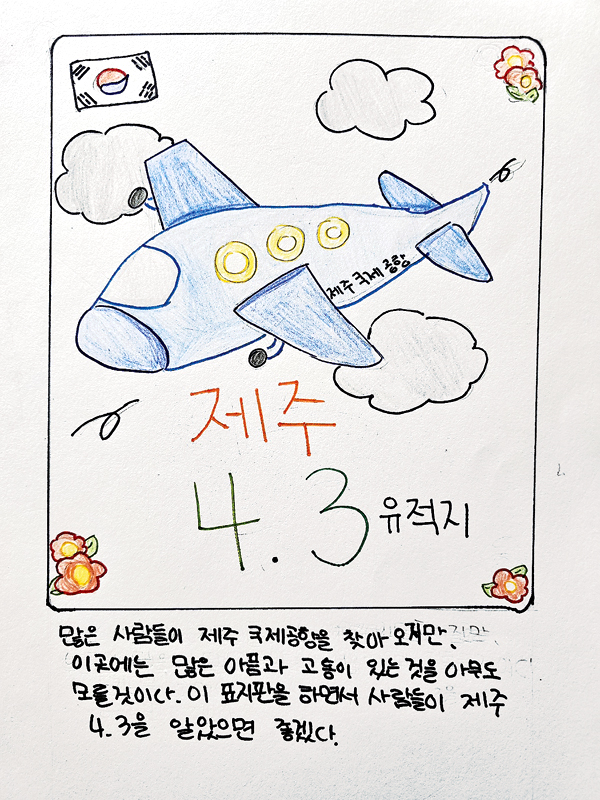 제주 국제 공항
제주
4.3 유적지
많은 사람들이 제주 국제공항을 찾아 오지만,
이곳에는 많은 아픔과 고통이 있는 것을 아무도
모를것이다. 이 표지판을 하면서 사람들이 제주
4.3을 알았으면 좋겠다.